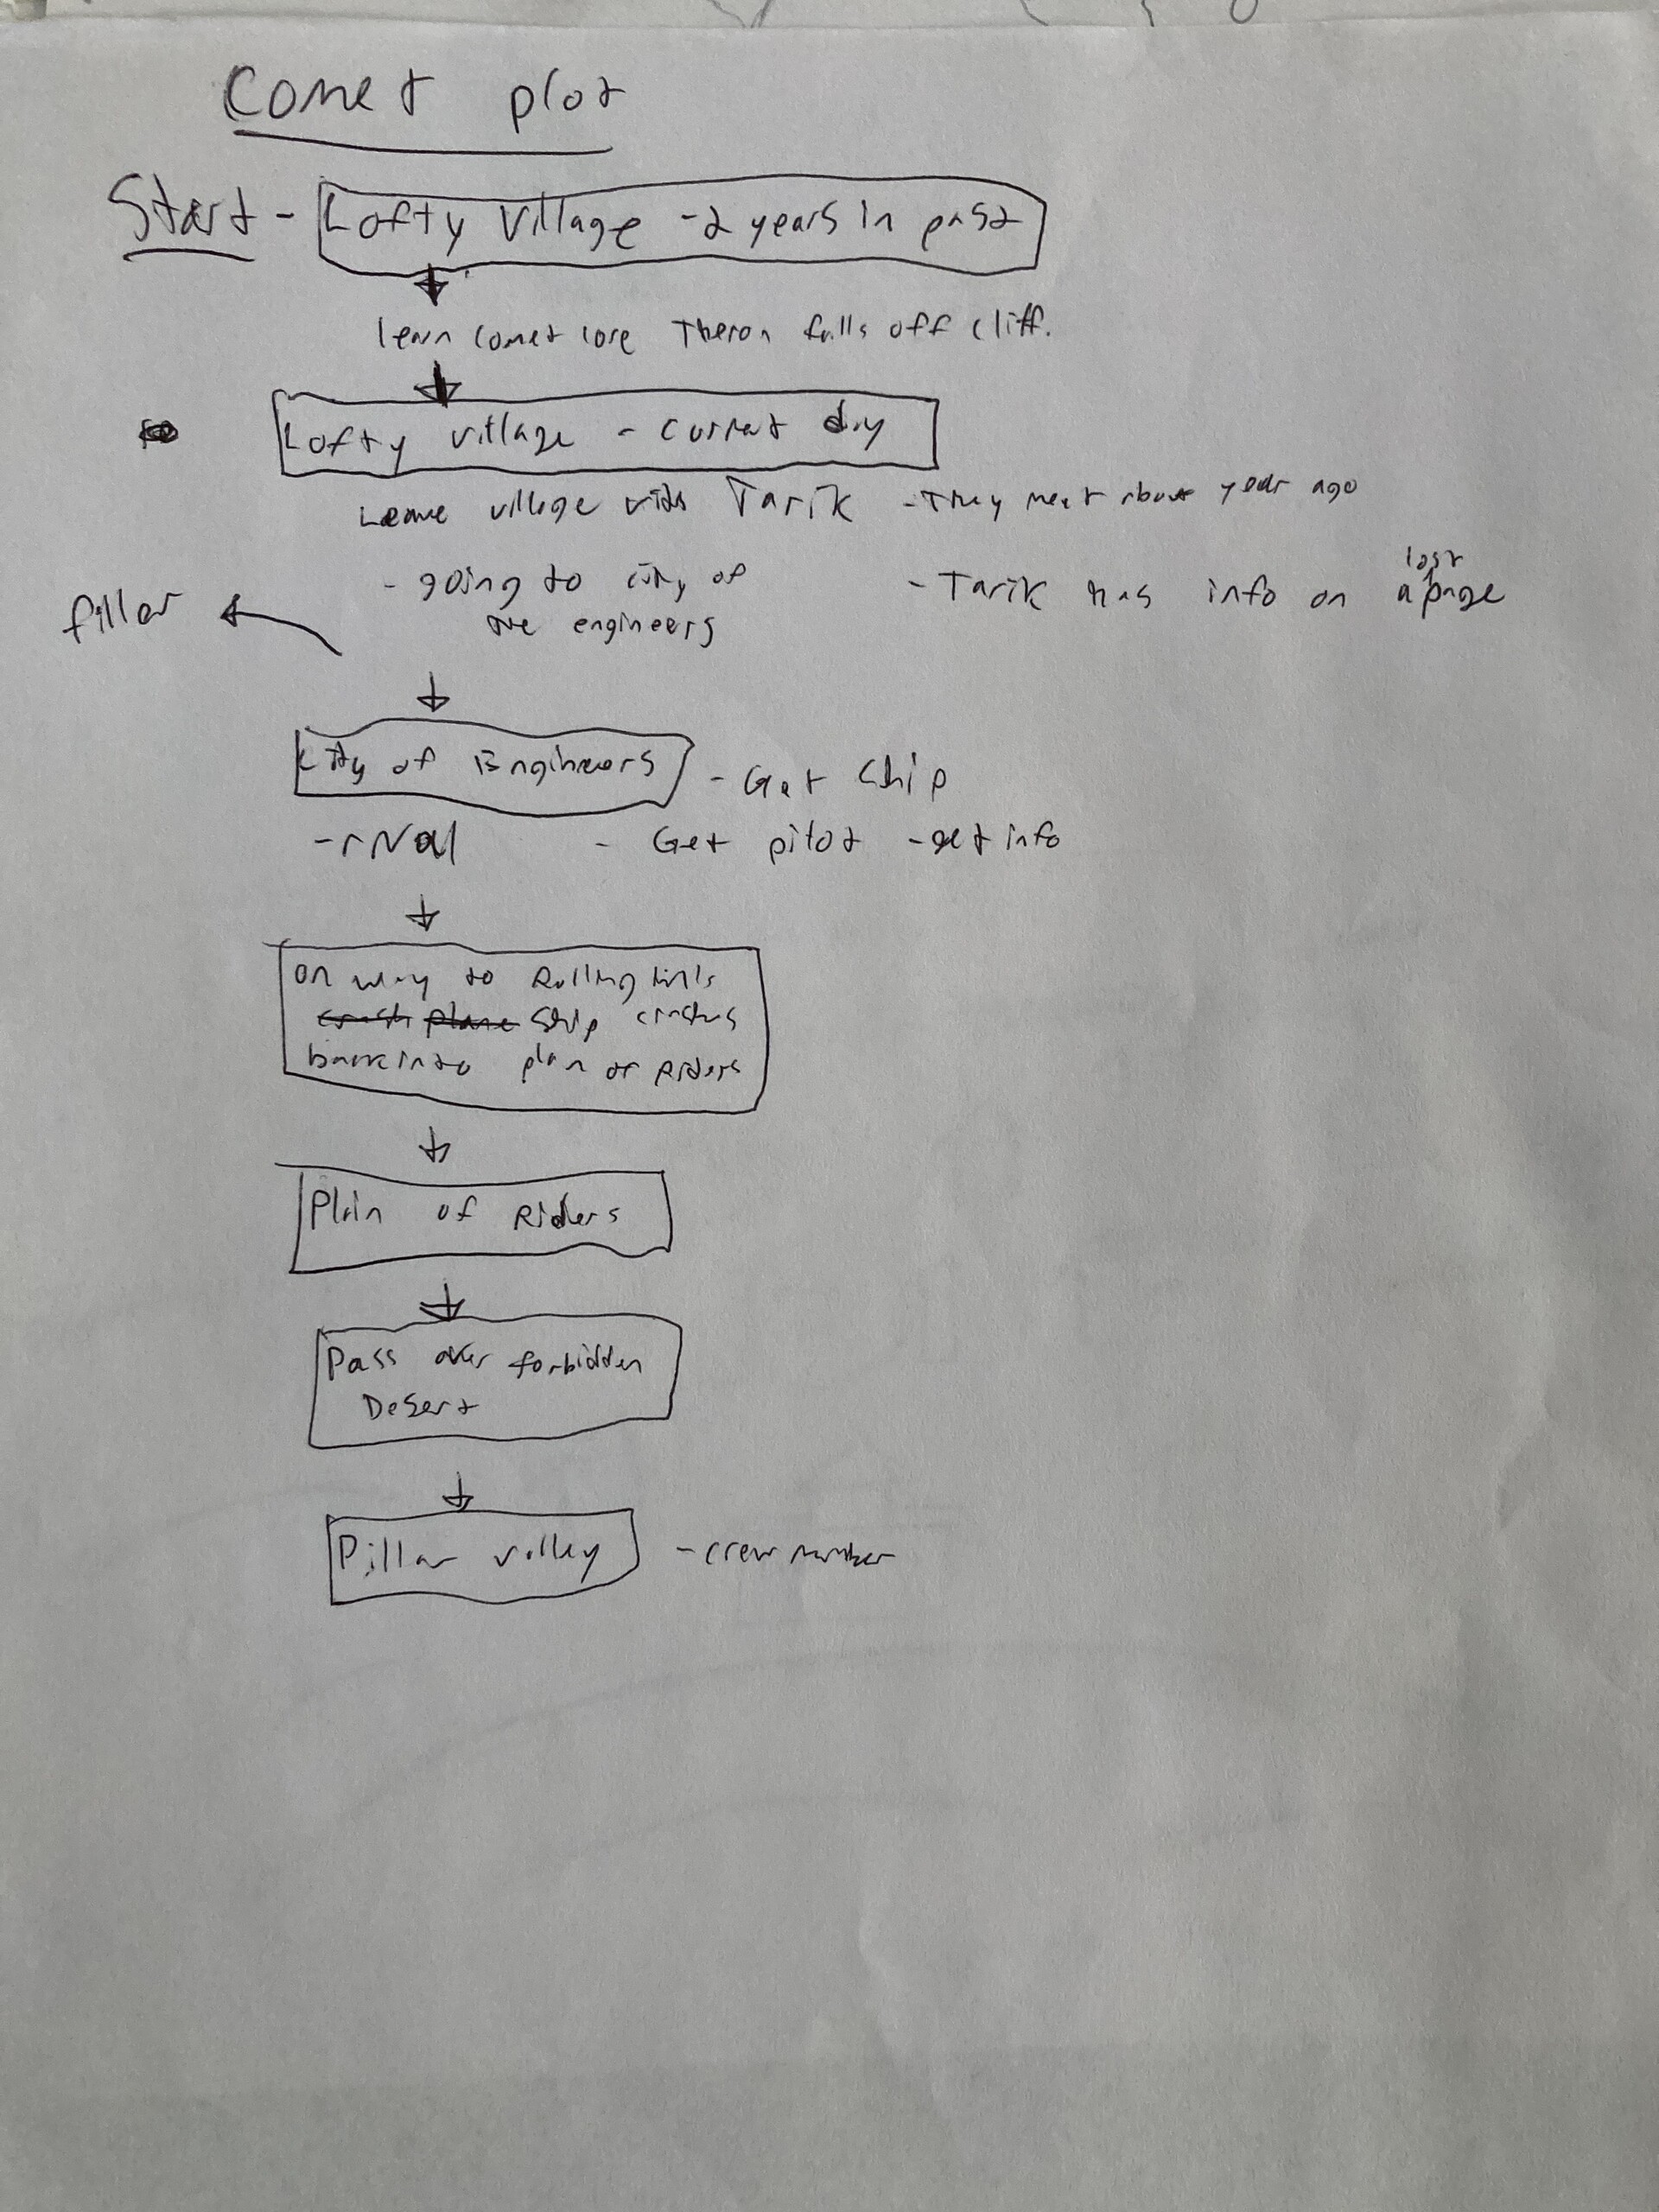 Comet plot
Start - Lofty Village - 2 years in past
learn comet lore Theron falls off cliff.
Lofty village - current day
Leave village with Tarik - They meet about year ago
- going to city of
the engineers
- Tarik has info on a lost page
filler
City of Engineers - Get ship
- rival - Get pilot - get info
on way to Rolling hills
crash plane ship crashes
back into plain of Riders
Plain of Riders
Pass over forbidden
Desert
Pillar valley - crew member